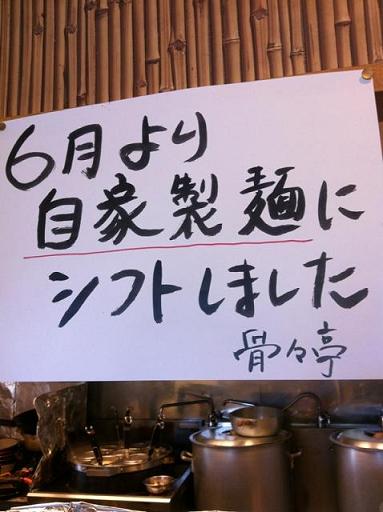 6月より
自家製麺に
シフトしました
骨々亭